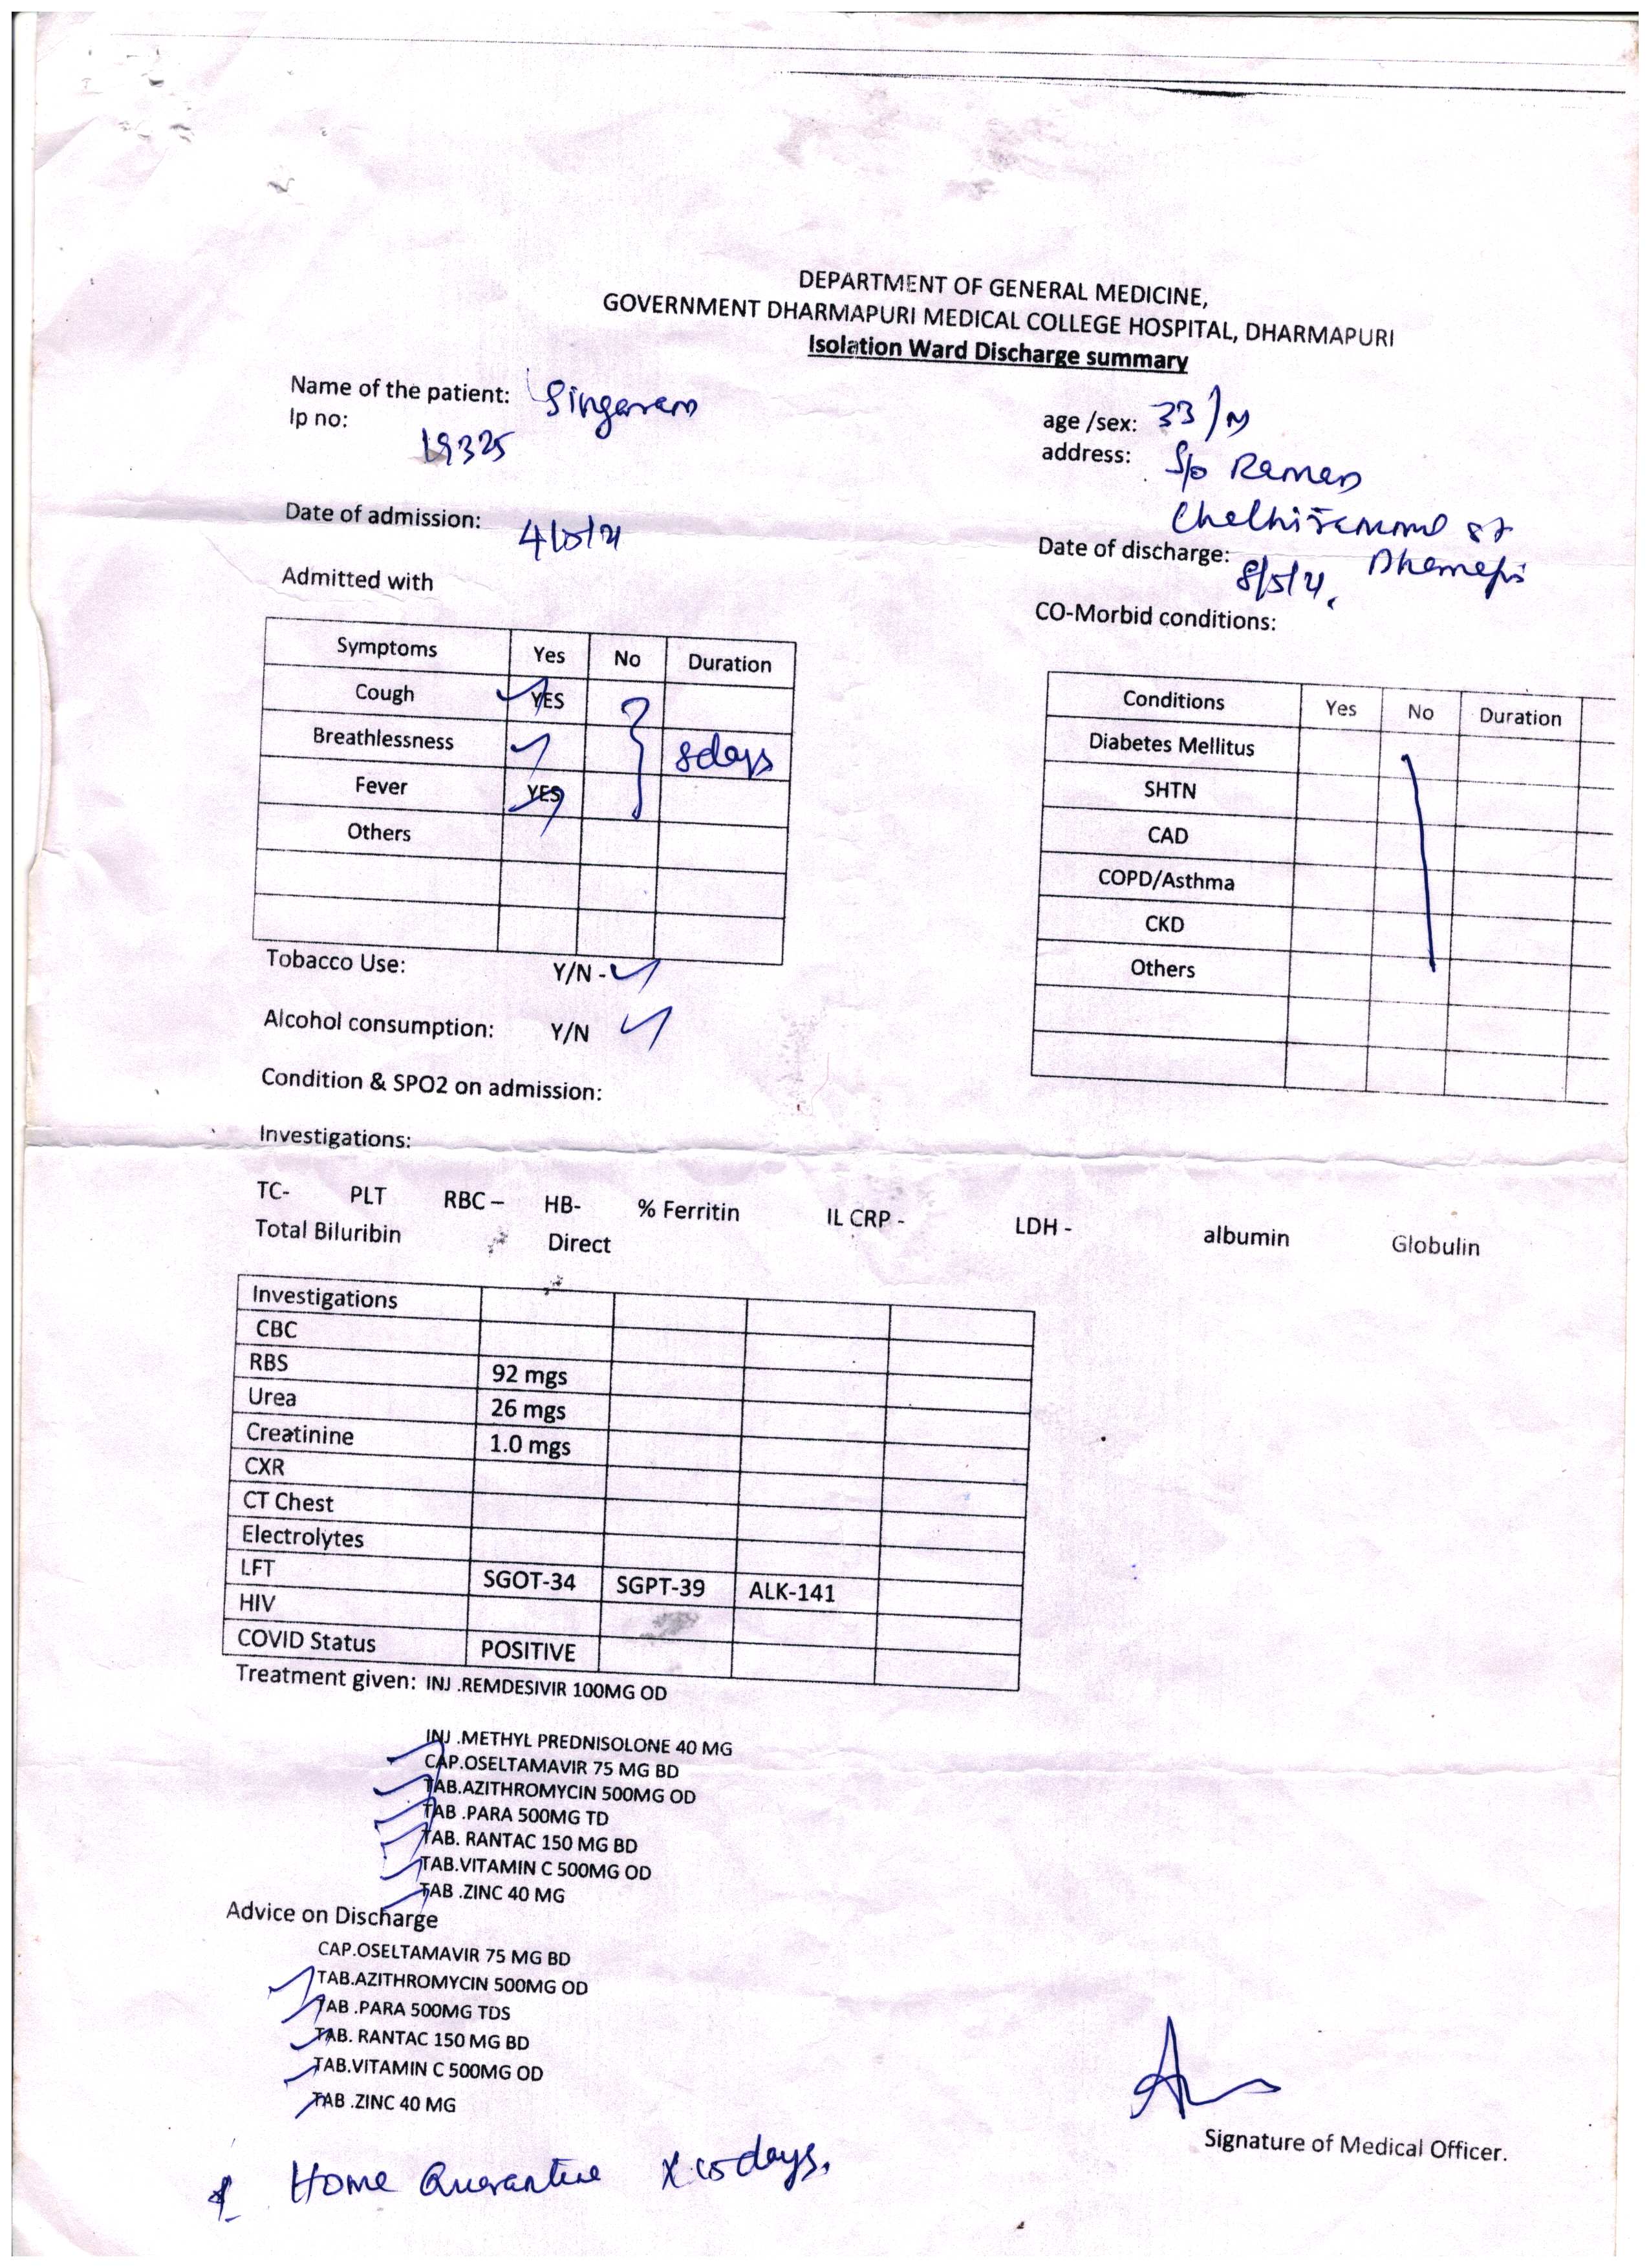 DEPARTMENT OF GENERAL MEDICINE,
GOVERNMENT DHARMAPURI MEDICAL COLLEGE HOSPITAL, DHARMAPURI
Isolation Ward Discharge summary
Name of the patient: Singaram
Ip no: 19325
age /sex: 33/M
address: S/o Raman
st
Date of admission: 4/5/21
Date of discharge: 8/5/21.
Admitted with
Symptoms Yes No Duration
Cough YES
Breathlessness 8days
Fever YES
Others
CO-Morbid conditions:
Conditions Yes No Duration
Diabetes Mellitus
SHTN
CAD
COPD/Asthma
CKD
Others
Tobacco Use: Y/N -
Alcohol consumption: Y/N
Condition & SPO2 on admission:
Investigations:
TC- PLT RBC – HB- % Ferritin IL CRP - LDH - albumin Globulin
Total Biluribin Direct
Investigations
CBC
RBS 92 mgs
Urea 26 mgs
Creatinine 1.0 mgs
CXR
CT Chest
Electrolytes
LFT SGOT-34 SGPT-39 ALK-141
HIV
COVID Status POSITIVE
Treatment given: INJ .REMDESIVIR 100MG OD
INJ .METHYL PREDNISOLONE 40 MG
CAP.OSELTAMAVIR 75 MG BD
TAB.AZITHROMYCIN 500MG OD
TAB .PARA 500MG TD
TAB. RANTAC 150 MG BD
TAB.VITAMIN C 500MG OD
TAB .ZINC 40 MG
Advice on Discharge
CAP.OSELTAMAVIR 75 MG BD
TAB.AZITHROMYCIN 500MG OD
TAB .PARA 500MG TDS
TAB. RANTAC 150 MG BD
TAB.VITAMIN C 500MG OD
TAB .ZINC 40 MG
Home Quarantine x days.
Signature of Medical Officer.